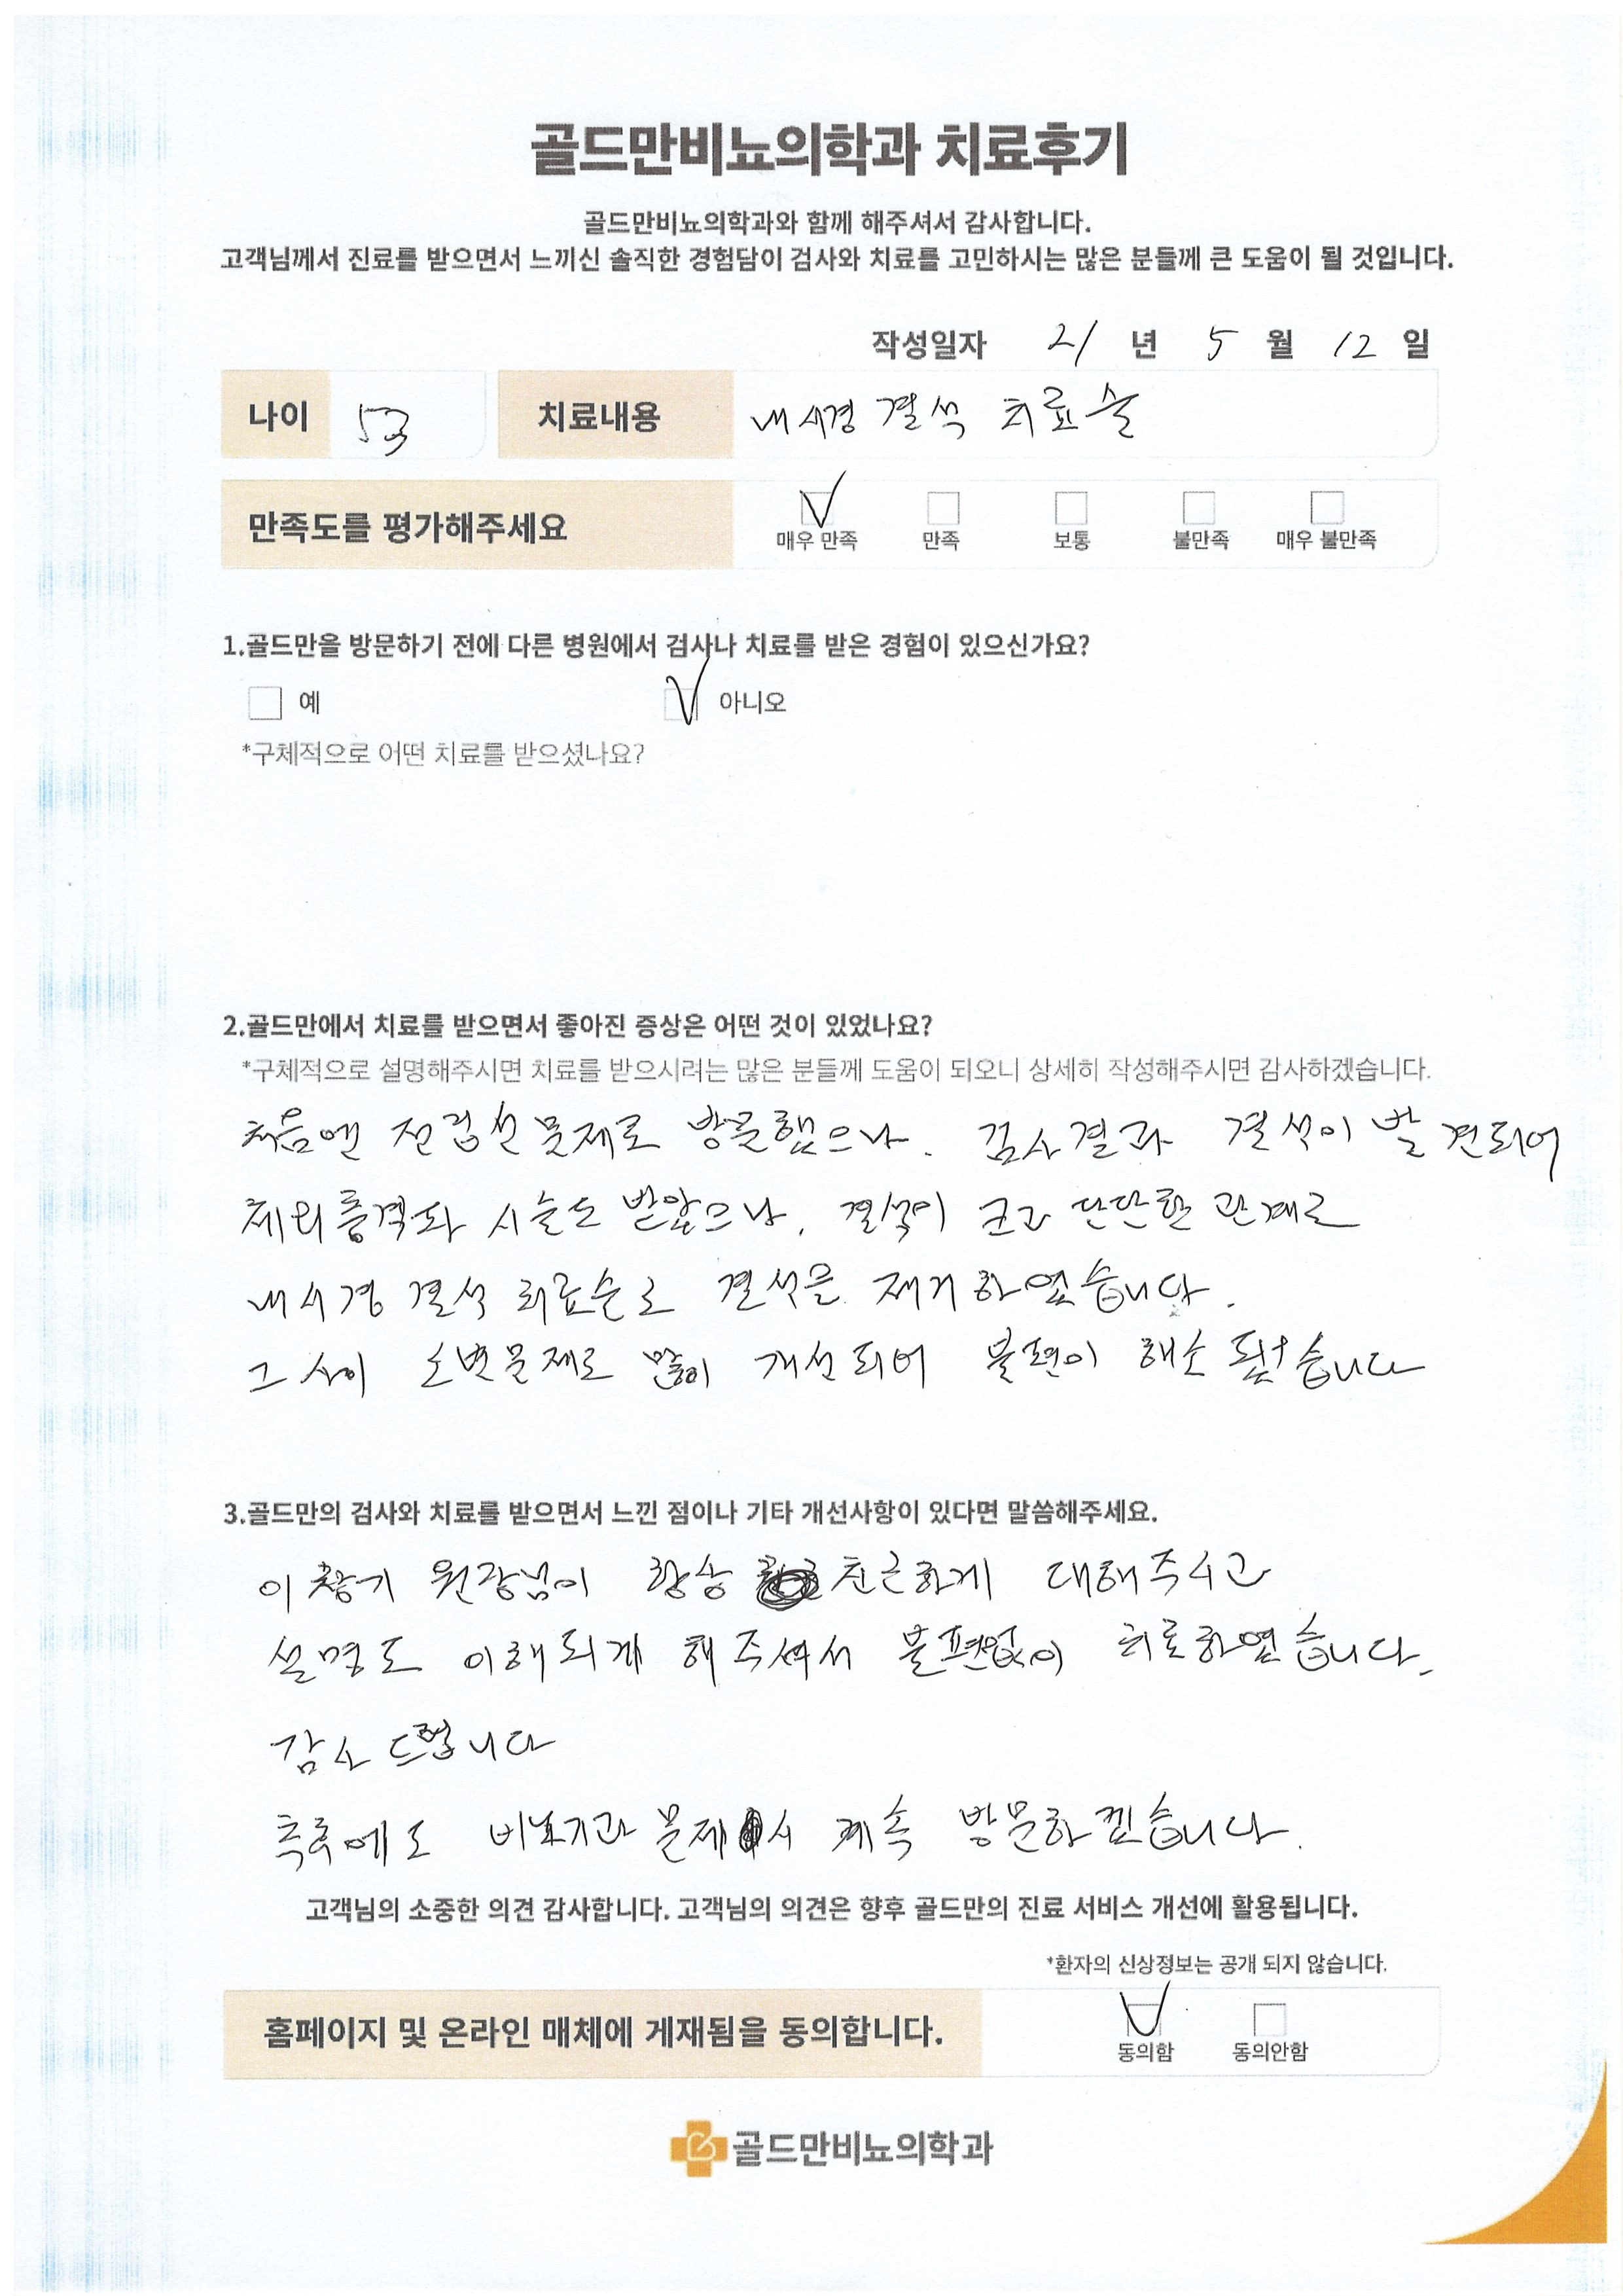 골드만비뇨의학과 치료후기
골드만비뇨의학과와 함께 해주셔서 감사합니다.
고객님께서 진료를 받으면서 느끼신 솔직한 경험담이 검사와 치료를 고민하시는 많은 분들께 큰 도움이 될 것입니다.
작성일자 21 년 5 월 12 일
나이 53 치료내용 내시경 결석 치료술
만족도를 평가해주세요 매우 만족 만족 보통 불만족 매우 불만족
1.골드만을 방문하기 전에 다른 병원에서 검사나 치료를 받은 경험이 있으신가요?
예 아니오
*구체적으로 어떤 치료를 받으셨나요?
2.골드만에서 치료를 받으면서 좋아진 증상은 어떤 것이 있었나요?
*구체적으로 설명해주시면 치료를 받으시려는 많은 분들께 도움이 되오니 상세히 작성해주시면 감사하겠습니다.
처음엔 전립선 문제로 방문했으나. 검사결과 결석이 발견되어
체외충격파 시술도 받았으나, 결석이 크고 단단한 관계로
내시경 결석 치료술로 결석을 제거하였습니다.
그 사이 소변문제로 많이 개선되어 불편이 해소 됐습니다
3.골드만의 검사와 치료를 받으면서 느낀 점이나 기타 개선사항이 있다면 말씀해주세요.
이창기 원장님이 항상 친근하게 대해주시고
설명도 이해되게 해주셔서 불편없이 치료하였습니다.
감사드립니다
추후에도 비뇨기과 문제시 계속 방문하겠습니다.
고객님의 소중한 의견 감사합니다. 고객님의 의견은 향후 골드만의 진료 서비스 개선에 활용됩니다.
*환자의 신상정보는 공개 되지 않습니다.
홈페이지 및 온라인 매체에 게재됨을 동의합니다. 동의함 동의안함
골드만비뇨의학과